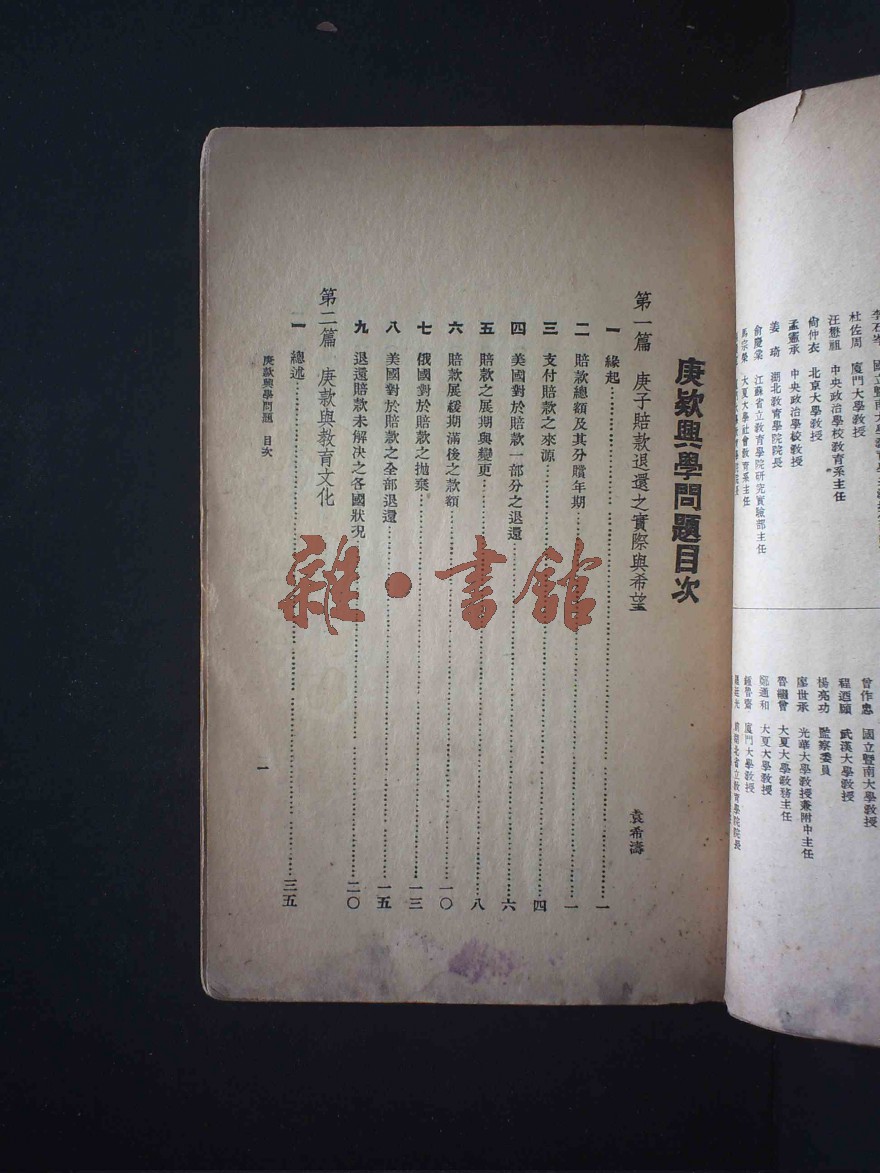 李石岑 國立暨南大學教育學
杜佐周 廈門大學教授
汪懋祖 中央政治學校教育系主任
尙仲衣 北京大學教授
孟憲承 中央政治學校教授
姜琦 湖北教育學院院長
俞慶棠 江蘇省立教育學院研究實驗部主任
馬宗榮 大夏大學社會教育系主任
曾作忠 國立暨南大學教授
程迺頤 武漢大學教授
楊亮功 監察委員
廖世承 光華大學教授兼附中主任
魯繼曾 大夏大學敎務主任
鄭通和 大夏大學教授
鍾魯齋 廈門大學教授
湖北省立教育學院院長
庚欵興學問題目次
第一篇 庚子賠款退還之實際與希望 袁希濤
一 緣起……一
二 賠款總額及其分贖年期……一
三 支付賠款之來源……四
四 美國對於賠款一部分之退還……六
五 賠款之展期與變更……八
六 賠款展緩期滿後之款額……一〇
七 俄國對於賠款之拋棄……一三
八 美國對於賠款之全部退還……一五
九 退還賠款未解決之各國狀况……二〇
第二篇 庚款與教育文化
一 總述……三五
庚款興學問題 目次
一
雜·書館